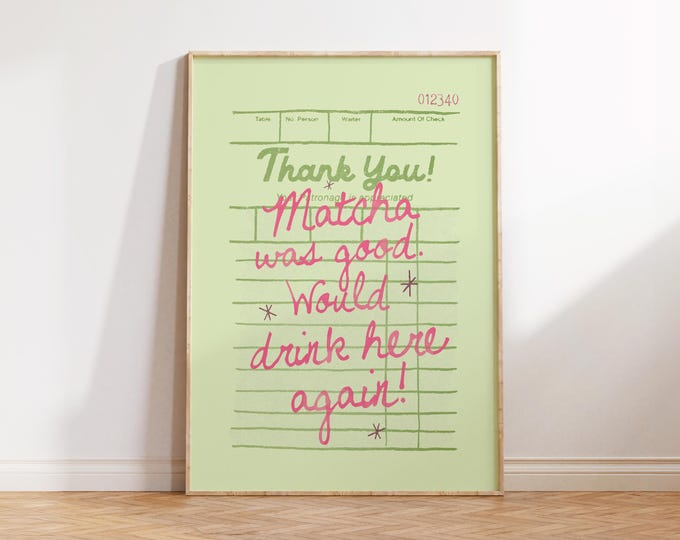 012340
Table No. Person Waiter Amount Of Check
Thank You!
Your Patronage is appreciated
Matcha
was good.
Would
drink here
again!